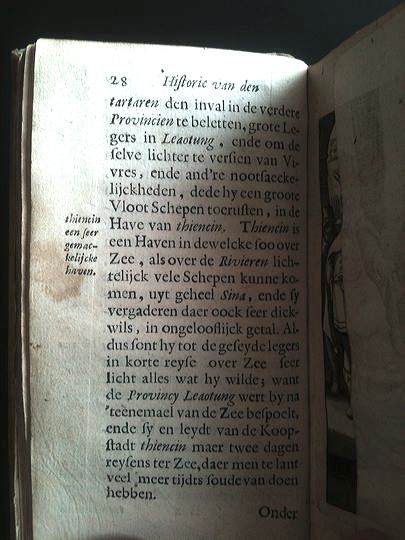 28 Hiſtorie van den
tartaren den inval in de verdere
Provincien te beletten, grote Le-
gers in Leaotung, ende om de
ſelve lichter te verſien van Vi-
vres, ende and're nootſaecke-
lijckheden, dede hy een groote
Vloot Schepen toeruſten, in de
Have van thiencin. Thiencin is
een Haven in dewelcke ſoo over
Zee, als over de Rivieren lich-
telijck vele Schepen kunne ko-
men, uyt geheel Sina, ende ſy
vergaderen daer oock ſeer dick-
wils, in ongelooflijck getal. Al-
dus ſont hy tot de geſeyde legers
in korte reyſe over Zee ſeer
licht alles wat hy wilde; want
de Provincy Leaotung wert by na
'teenemael van de Zee beſpoelt,
ende ſy en leydt van de Koop-
ſtadt thiencin maer twee dagen
reyſens ter Zee, daer men te lant
veel meer tijdts ſoude van doen
hebben.
Onder
thiencin
een ſeer
gemac-
kelijcke
haven.